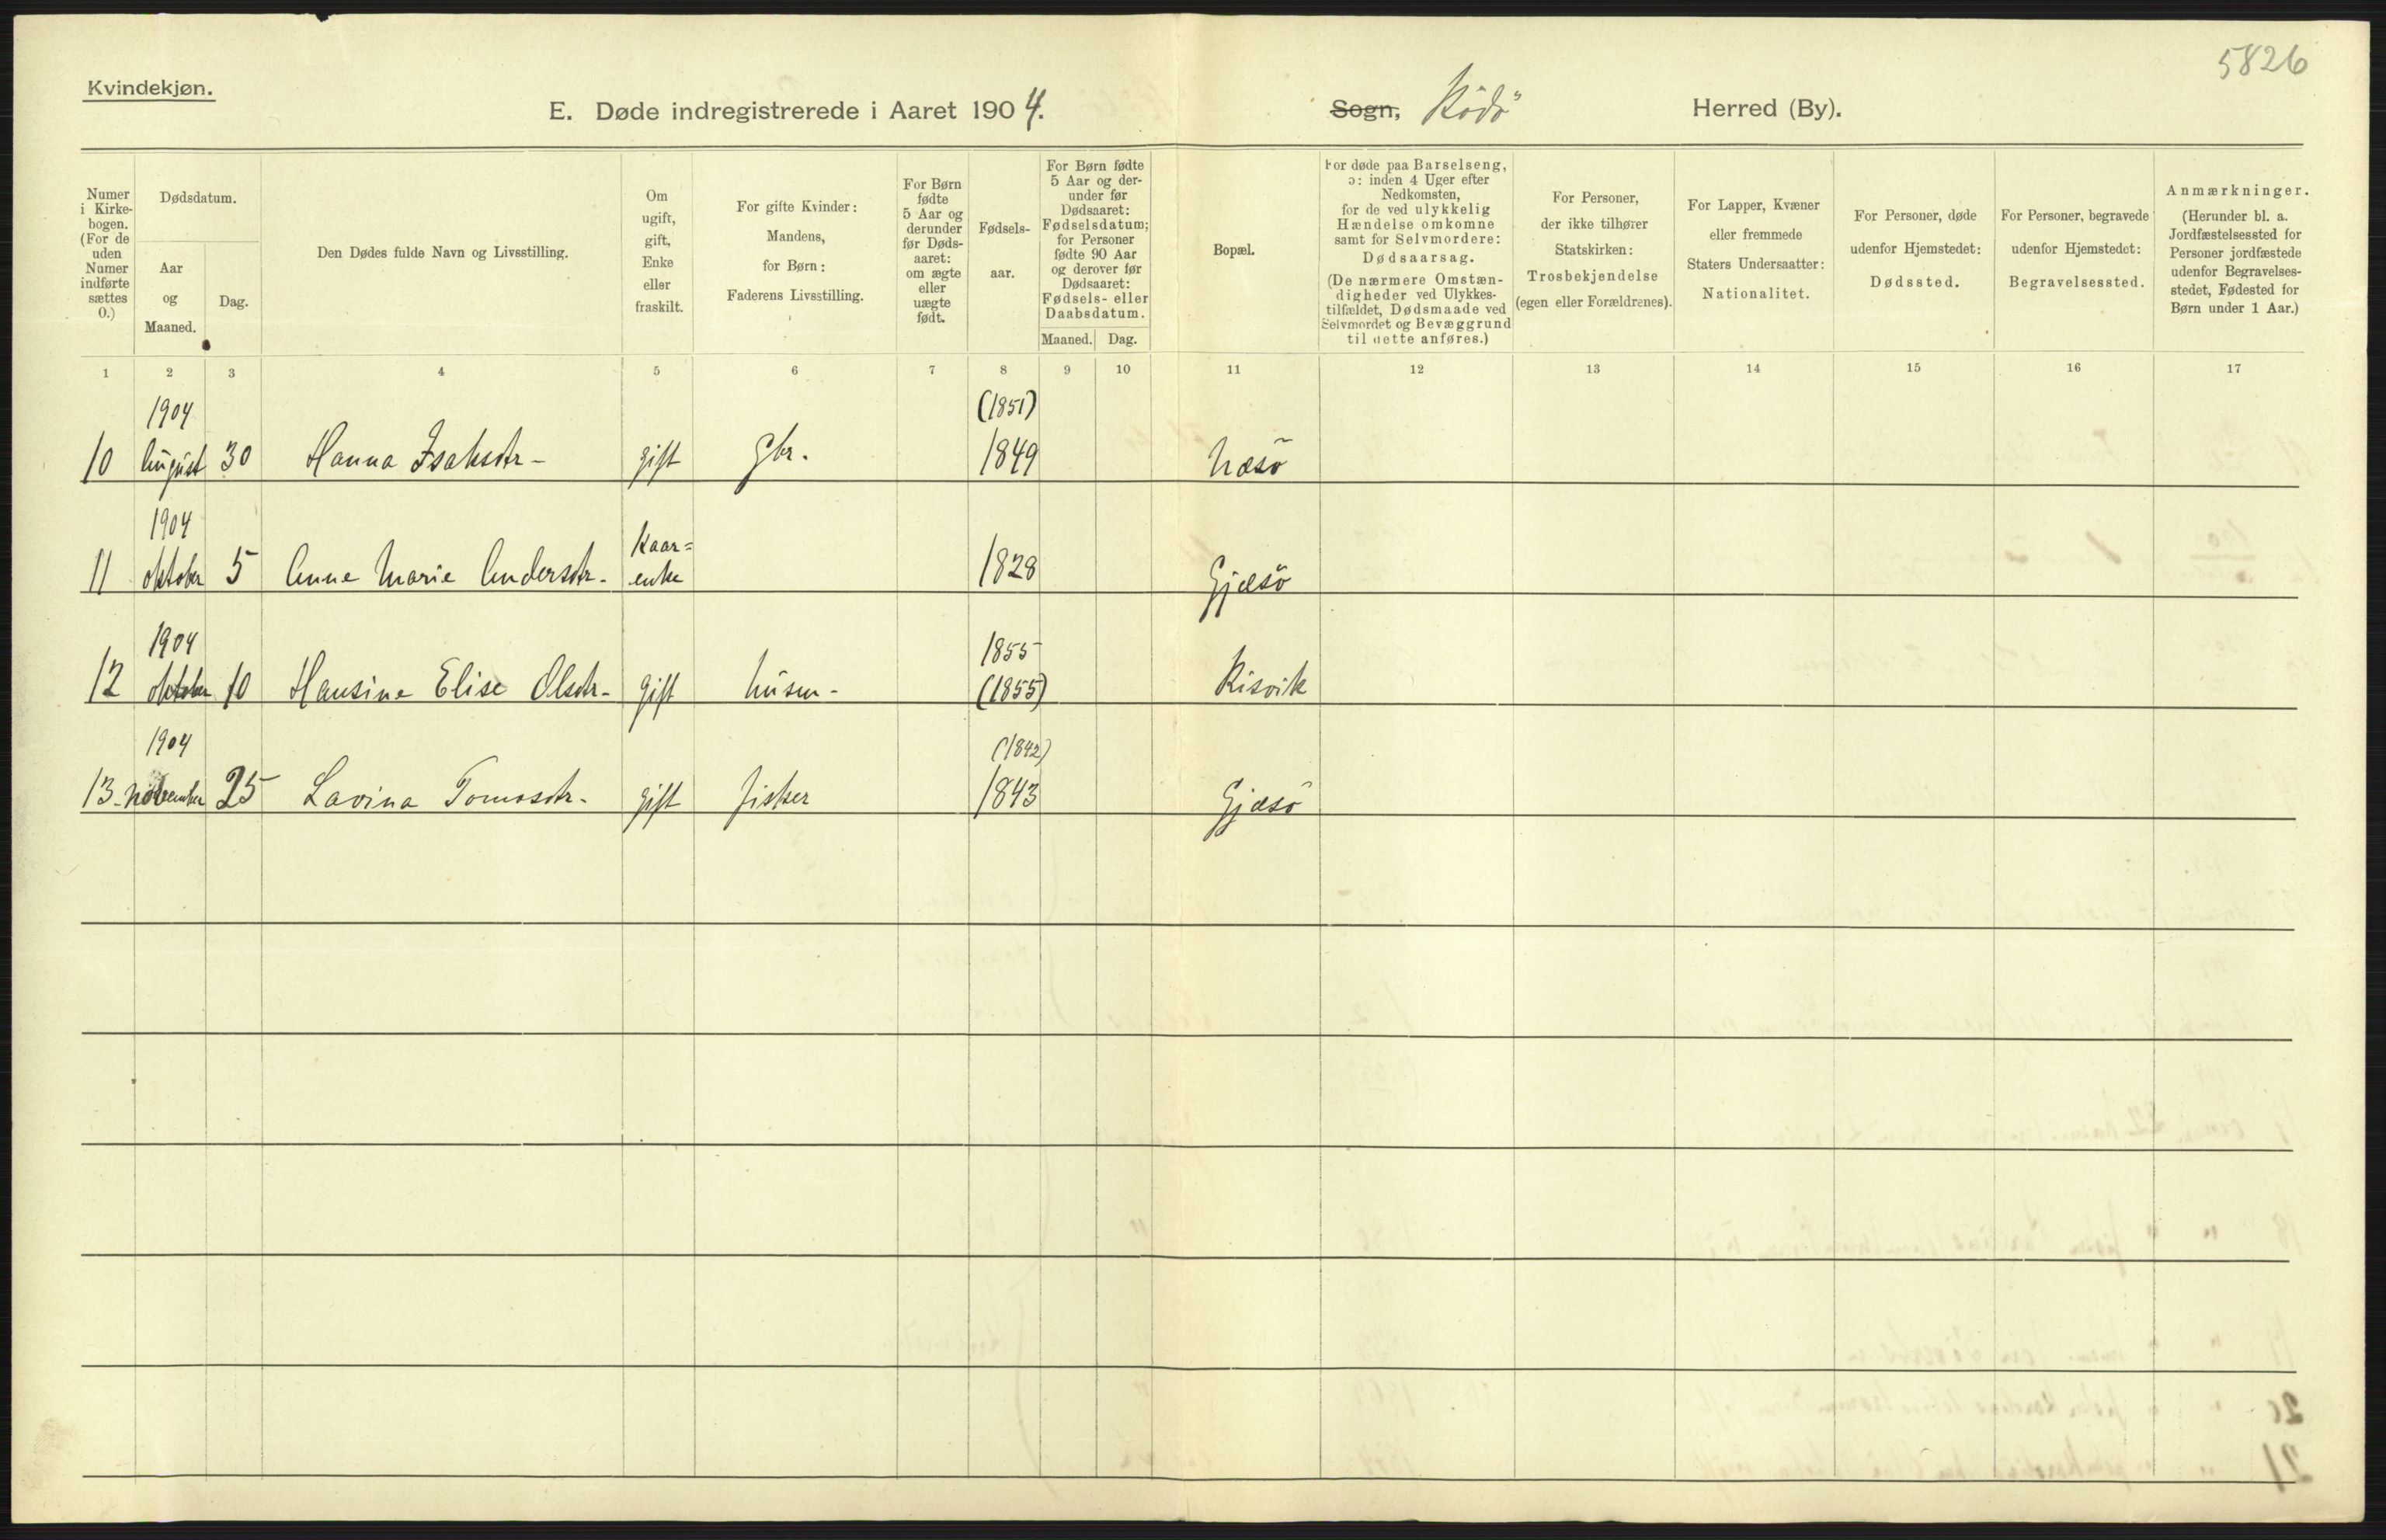 5826
Kvindekjøn.
E. Døde indregistrerede i Aaret 1904. Sogn, Rödö Herred (By).
Numer i Kirke-
bogen.
(For de
uden
Numer
indførte
sættes
0.)
Dødsdatum.
Aar
og
Maaned.
Dag.
Den Dødes fulde Navn og Livsstilling.
Om
ugift,
gift,
Enke
eller
fraskilt.
For gifte Kvinder:
Mandens,
for Børn:
Faderens Livsstilling.
For Børn
fødte
5 Aar og
derunder
før Døds-
aaret:
om ægte
eller
uægte
født.
Fødsels-
aar.
For Børn fødte
5 Aar og der-
under før
Dødsaaret:
Fødselsdatum;
for Personer
fødte 90 Aar
og derover før
Dødsaaret:
Fødsels- eller
Daabsdatum.
Maaned. Dag.
Bopæl.
For døde paa Barselseng,
ɔ: inden 4 Uger efter
Nedkomsten,
for de ved ulykkelig
Hændelse omkomne
samt for Selvmordere:
Dødsaarsag.
(De nærmere Omstæn-
digheder ved Ulykkes-
tilfældet, Dødsmaade ved
Selvmordet og Bevæggrund
til dette anføres.)
For Personer,
der ikke tilhører
Statskirken:
Trosbekjendelse
(egen eller Forældrenes).
For Lapper, Kvæner
eller fremmede
Staters Undersaatter:
Nationalitet.
For Personer, døde
udenfor Hjemstedet:
Dødssted.
For Personer, begravede
udenfor Hjemstedet:
Begravelsessted.
Anmærkninger.
(Herunder bl. a.
Jordfæstelsessted for
Personer jordfæstede
udenfor Begravelses-
stedet, Fødested for
Børn under 1 Aar.)
1 2 3 4 5 6 7 8 9 10 11 12 13 14 15 16 17
1904 (1851)
10 August 30 Hanna Isaksdtr- gift Gbr. 1849 Næsö
1904 Kaar=
11 oktober 5 Anne Marie Andersdtr. enke 1828 Gjæsö
1904 1855
12 oktober 10 Hansine Elise Olsdtr- gift husm- (1855) Risvik
1904 (1842)
13 november 25 Lavina Tomasdtr- gift fisker 1843 Gjæsö